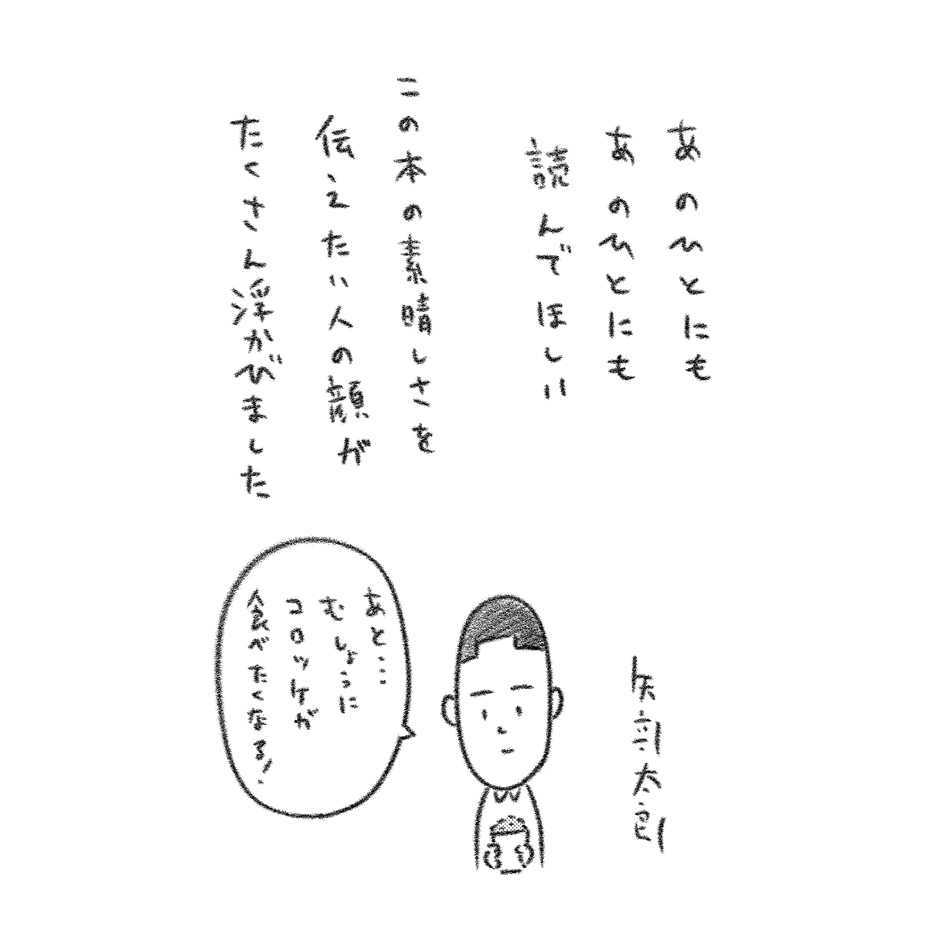 あのひとにも
あのひとにも
読んでほしい
この本の素晴しさを
伝えたい人の顔が
たくさん浮かびました
矢部太郎
あと…
むしょうに
コロッケが
食べたくなる!